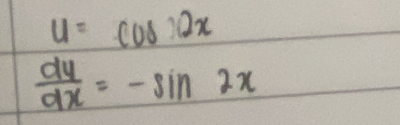 u = cos 2x
du/dx = - sin 2x